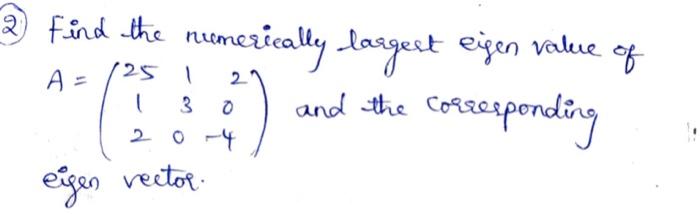 ② Find the numerically largest eigen value of
A = (25 1 2
1 3 0
2 0 -4) and the corresponding
eigen vector.